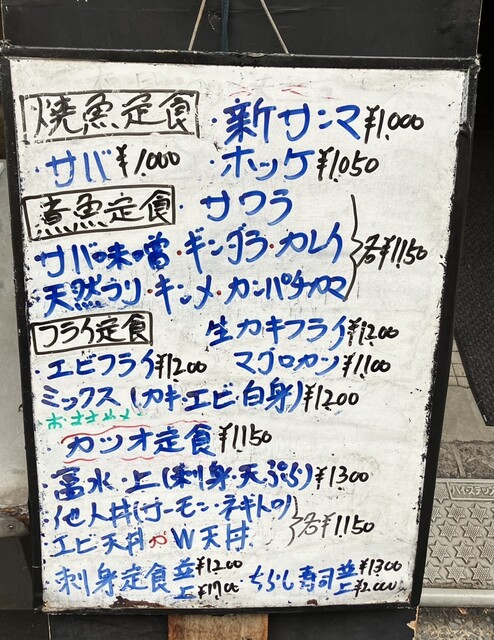 焼魚定食 ・新サンマ ¥1,000
・サバ ¥1,000 ・ホッケ ¥1,050
煮魚定食 ・サワラ
サバ味噌・ギンダラ・カレイ 各¥1150
天然ブリ・キンメ・カンパチカマ
フライ定食 生カキフライ ¥1200
・エビフライ ¥1200 マグロカツ ¥1,100
ミックス(カキ・エビ・白身) ¥1200
おすすめ
カツオ定食 ¥1150
・冨水・上(刺身・天ぷら) ¥1300
・他人丼(サーモン・ネギトロ) 各¥1150
エビ天丼 W天丼
刺身定食 並¥1200 上¥1700 ・ちらし寿司 並¥1300 上¥2,000